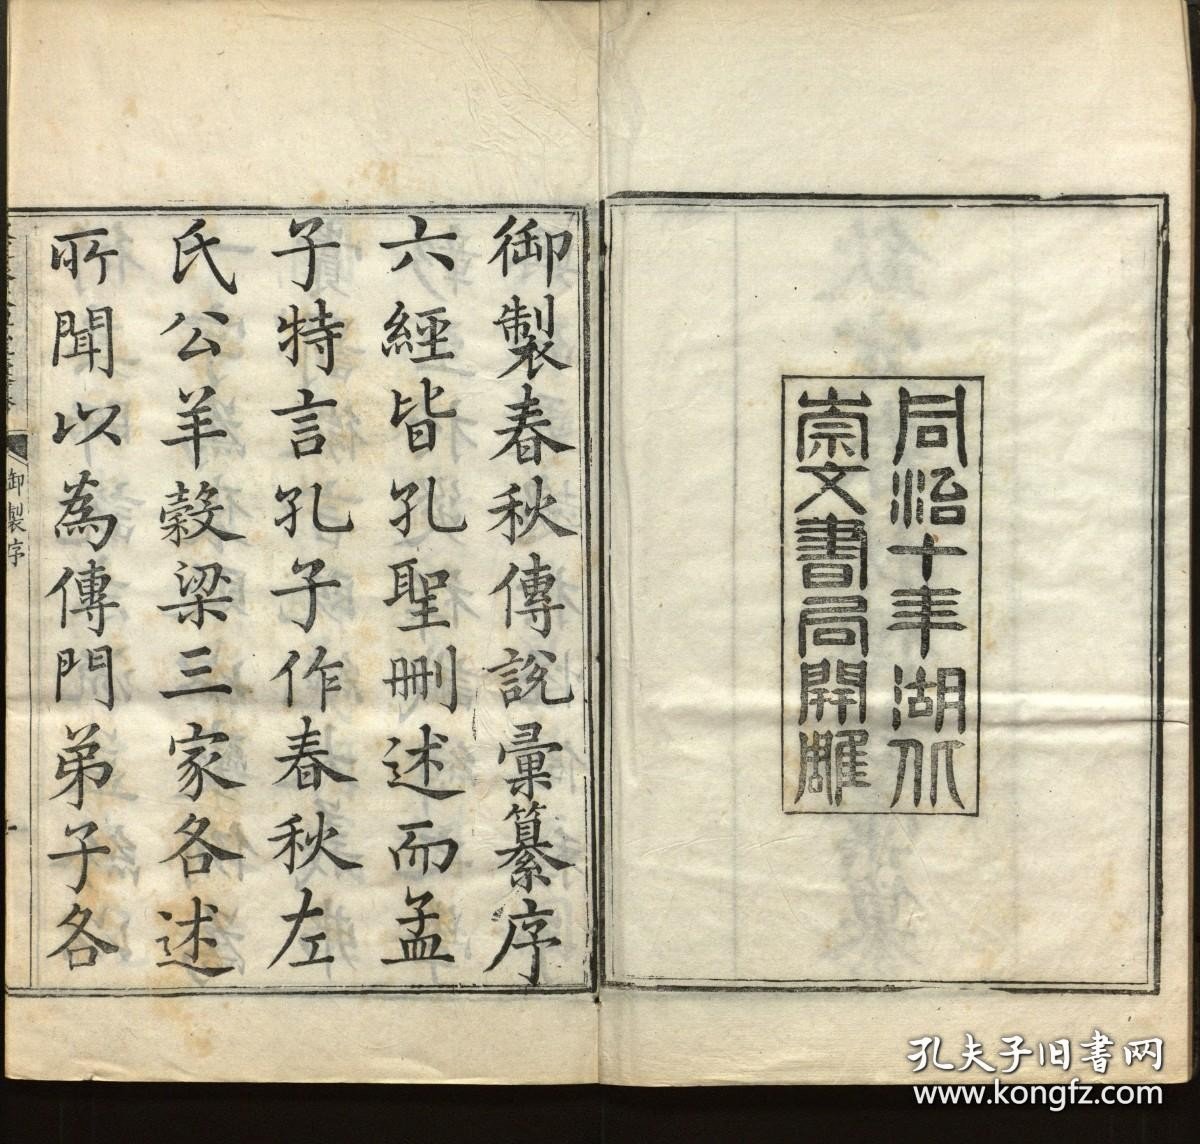 同治十年湖北
崇文書局開雕
御製春秋傳說彙纂序
六經皆孔聖刪述而孟
子特言孔子作春秋左
氏公羊穀梁三家各述
所聞以為傳門弟子各
御製序
孔夫子旧书网
www.kongfz.com